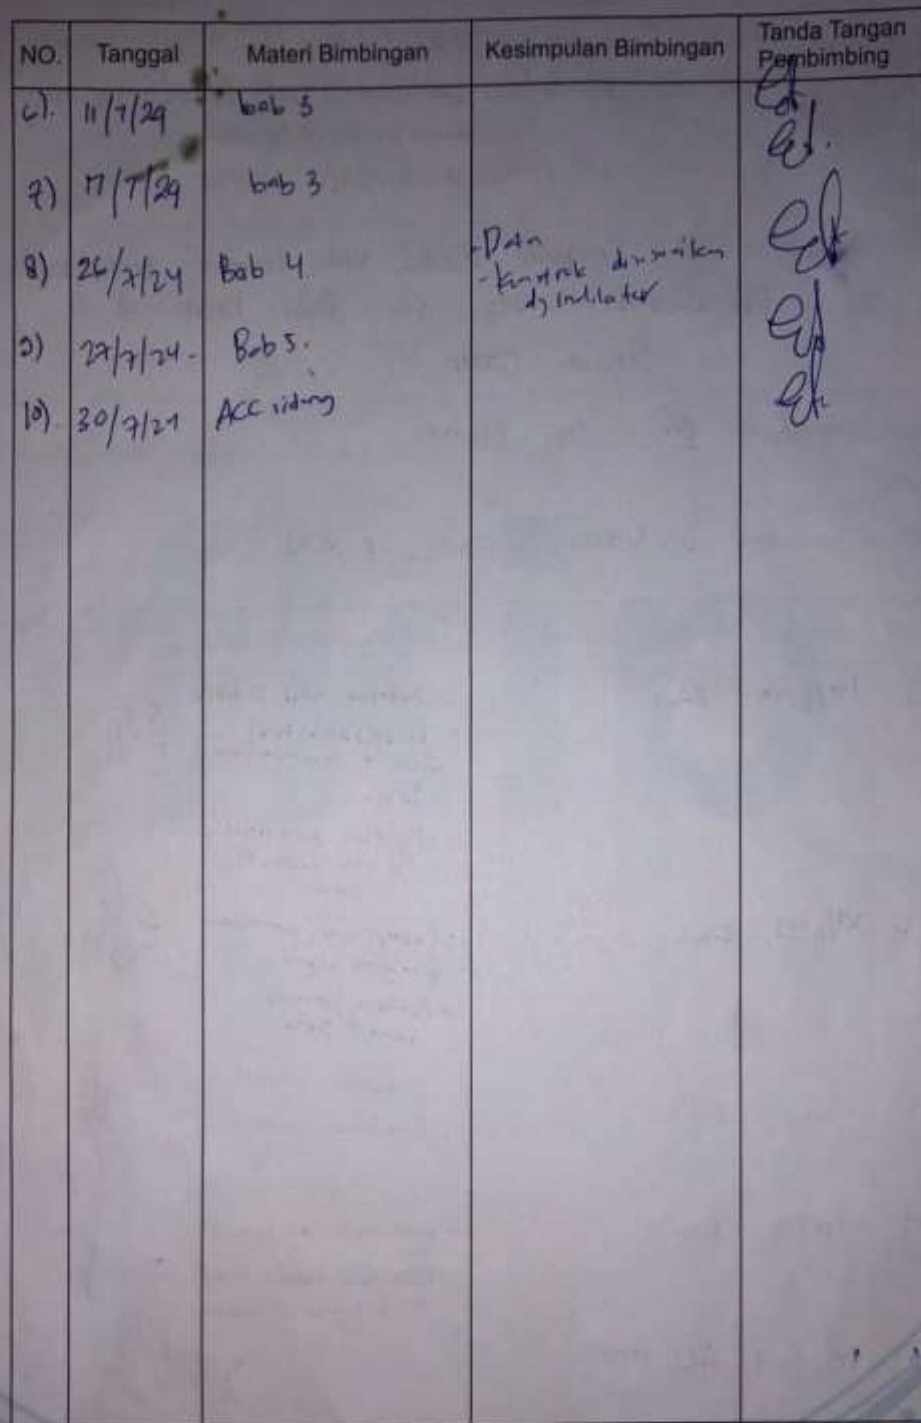 NO. Tanggal Materi Bimbingan Kesimpulan Bimbingan Tanda Tangan Pembimbing
6). 11/7/24 bab 3
7) 17/7/24 bab 3
8) 26/7/24 Bab 4 - Data
- disesuaikan
dg indikator
9) 27/7/24 - Bab 5.
10). 30/7/24 ACC sidang